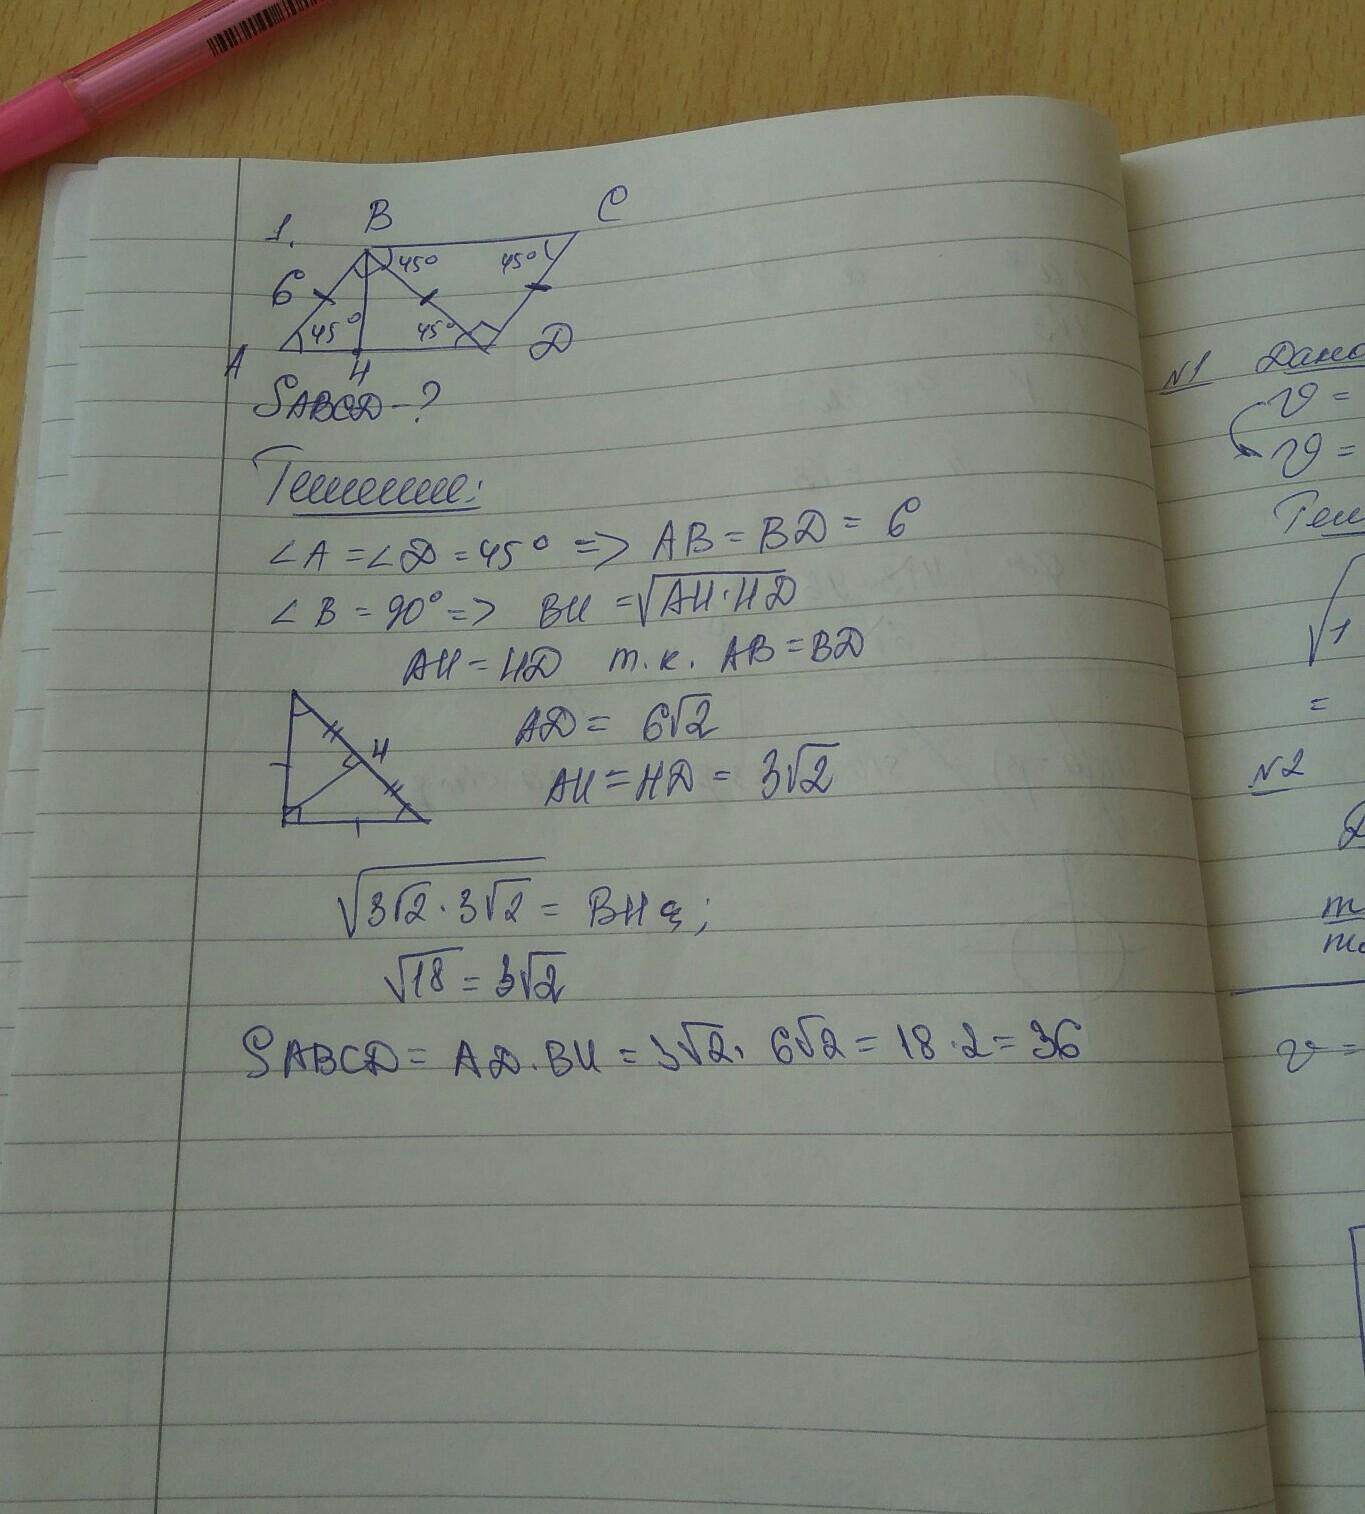 1.
B
C
6
45°
45°
45°
45°
A
H
D
SABCD - ?
Решение:
∠A = ∠D = 45° => AB = BD = 6
∠B = 90° => BH = √AH·HD
AH = HD т.к. AB = BD
AD = 6√2
H
AH = HD = 3√2
√3√2·3√2 = BH
√18 = 3√2
SABCD = AD·BH = 3√2 · 6√2 = 18·2 = 36
N1 Дано
v =
v =
Реш
√1
=
N2
Д
m
v =